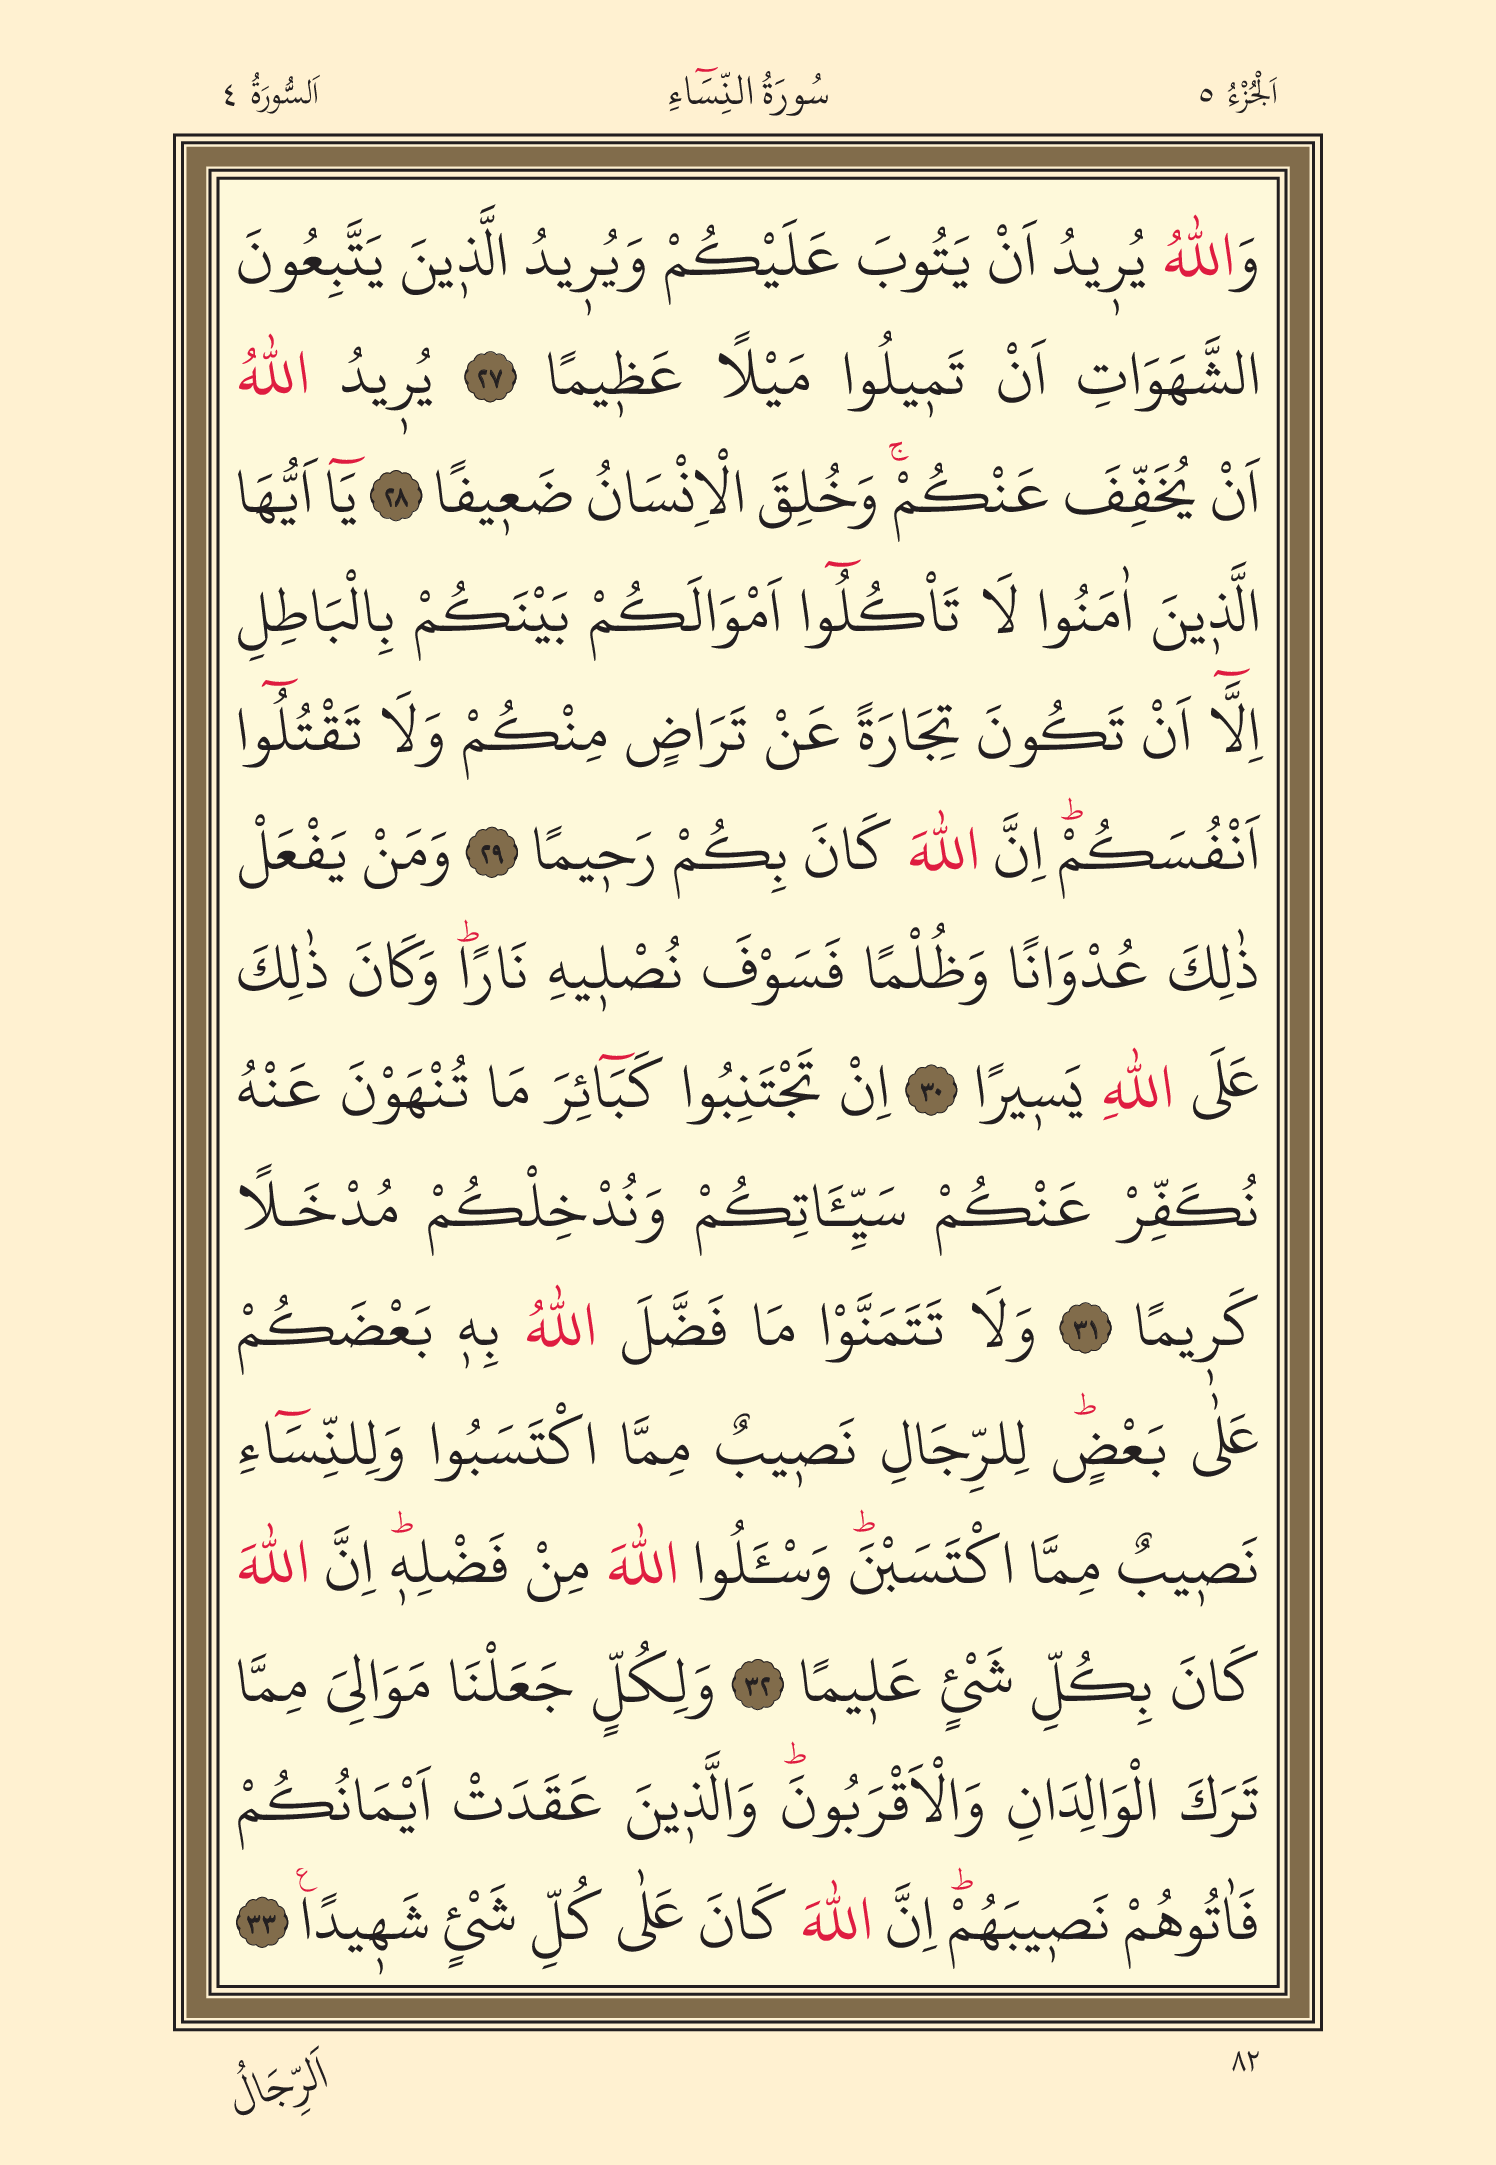 اَلْجُزْءُ ٥
سُورَةُ النِّسَٓاءِ
اَلسُّورَةُ ٤
وَاللّٰهُ يُر۪يدُ اَنْ يَتُوبَ عَلَيْكُمْ وَيُر۪يدُ الَّذ۪ينَ يَتَّبِعُونَ
الشَّهَوَاتِ اَنْ تَم۪يلُوا مَيْلًا عَظ۪يمًا ﴿٢٧﴾ يُر۪يدُ اللّٰهُ
اَنْ يُخَفِّفَ عَنْكُمْۚ وَخُلِقَ الْاِنْسَانُ ضَع۪يفًا ﴿٢٨﴾ يَٓا اَيُّهَا
الَّذ۪ينَ اٰمَنُوا لَا تَأْكُلُٓوا اَمْوَالَكُمْ بَيْنَكُمْ بِالْبَاطِلِ
اِلَّٓا اَنْ تَكُونَ تِجَارَةً عَنْ تَرَاضٍ مِنْكُمْ وَلَا تَقْتُلُٓوا
اَنْفُسَكُمْؕ اِنَّ اللّٰهَ كَانَ بِكُمْ رَح۪يمًا ﴿٢٩﴾ وَمَنْ يَفْعَلْ
ذٰلِكَ عُدْوَانًا وَظُلْمًا فَسَوْفَ نُصْل۪يهِ نَارًاؕ وَكَانَ ذٰلِكَ
عَلَى اللّٰهِ يَس۪يرًا ﴿٣٠﴾ اِنْ تَجْتَنِبُوا كَبَٓائِرَ مَا تُنْهَوْنَ عَنْهُ
نُكَفِّرْ عَنْكُمْ سَيِّـَٔاتِكُمْ وَنُدْخِلْكُمْ مُدْخَلًا
كَر۪يمًا ﴿٣١﴾ وَلَا تَتَمَنَّوْا مَا فَضَّلَ اللّٰهُ بِه۪ بَعْضَكُمْ
عَلٰى بَعْضٍؕ لِلرِّجَالِ نَص۪يبٌ مِمَّا اكْتَسَبُوا وَلِلنِّسَٓاءِ
نَص۪يبٌ مِمَّا اكْتَسَبْنَؕ وَسْـَٔلُوا اللّٰهَ مِنْ فَضْلِه۪ؕ اِنَّ اللّٰهَ
كَانَ بِكُلِّ شَيْئٍ عَل۪يمًا ﴿٣٢﴾ وَلِكُلٍّ جَعَلْنَا مَوَالِيَ مِمَّا
تَرَكَ الْوَالِدَانِ وَالْاَقْرَبُونَؕ وَالَّذ۪ينَ عَقَدَتْ اَيْمَانُكُمْ
فَاٰتُوهُمْ نَص۪يبَهُمْؕ اِنَّ اللّٰهَ كَانَ عَلٰى كُلِّ شَيْئٍ شَه۪يدًاع ﴿٣٣﴾
٨٢
اَلرِّجَالُ